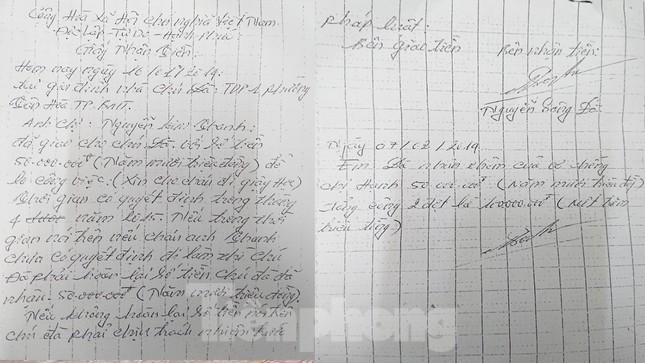 Cộng Hoà Xã Hội chủ nghĩa Việt Nam
Độc Lập Tự Do Hạnh Phúc
Giấy Nhận Tiền:
Hôm nay ngày 16/01/2019.
tại gia đình nhà chú Đô: TDP 4 phường
Tân Hoà TP. BMT.
Anh chị: Nguyễn Kim Thanh:
đã giao cho chú Đô. với số tiền
50.000.000đ (Năm mươi triệu đồng) để
lo công việc: (Xin cho cháu đi giấy Học)
thời gian có quyết định trong tháng
4 năm 2015. Nếu trong thời
gian nói trên nếu cháu anh Thanh
chưa có quyết định đi làm thì chú
Đô phải hoàn lại số tiền chú đã đã
nhận. 50.000.000đ (Năm mươi triệu đồng).
Nếu không hoàn lại số tiền nói trên
chú đô phải chịu trách nhiệm trước
pháp luật:
Bên giao tiền
Bên nhận tiền:
Nguyễn Đô
Ngày 07/02/2019
Em Đô nhận thêm của vợ chồng
chị Hạnh 50.000.000đ (Năm mươi triệu đồng)
Tổng cộng 2 đợt là 100.000.000đ (Một trăm
triệu đồng)
Tiền phong